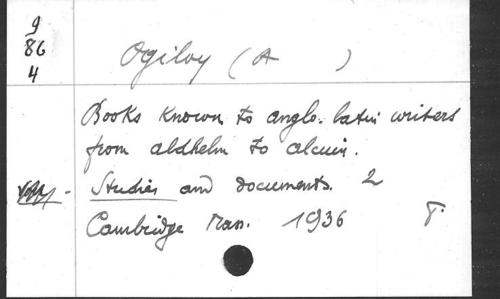 9
86
4
Ogilvy (A )
Books known to anglo-latin writers
from aldhelm to alcuin.
Studies and documents. 2
Cambridge Mass. 1936 8.